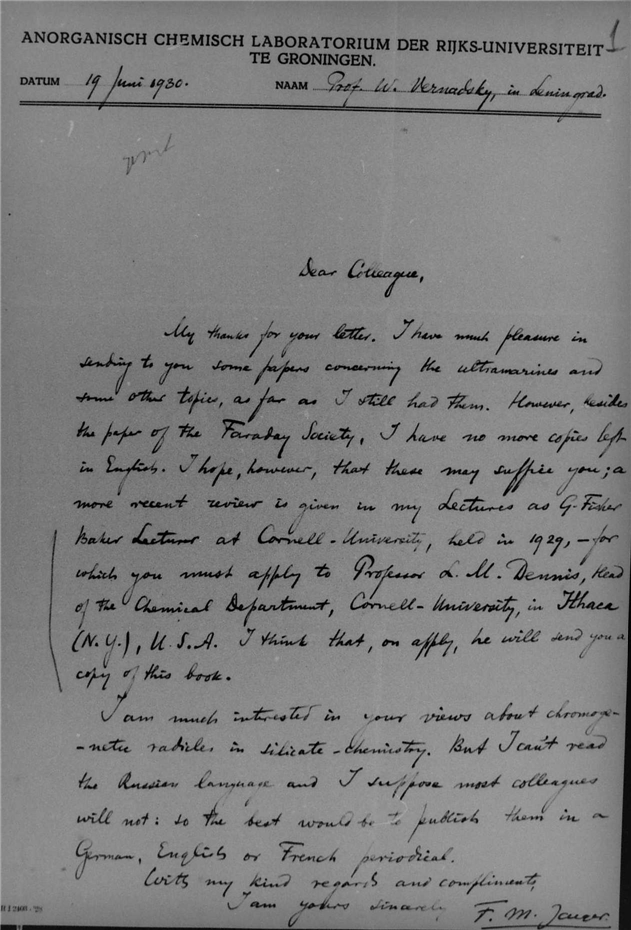 1
ANORGANISCH CHEMISCH LABORATORIUM DER RIJKS-UNIVERSITEIT
TE GRONINGEN.
DATUM 19 Juni 1930. NAAM Prof. W. Vernadsky, in Leningrad.
Dear Colleague,
My thanks for your letter. I have much pleasure in
sending to you some papers concerning the ultramarines and
some other topics, as far as I still had them. However, besides
the paper of the Faraday Society, I have no more copies left
in English. I hope, however, that these may suffice you; a
more recent review is given in my Lectures as G. Fisher
Baker Lecturer at Cornell-University, held in 1929, – for
which you must apply to Professor L. M. Dennis, Head
of the Chemical Department, Cornell-University, in Ithaca
(N.Y.), U.S.A. I think that, on apply, he will send you a
copy of this book.
I am much interested in your views about chromoge-
-netic radicles in silicate-chemistry. But I can't read
the Russian language and I suppose most colleagues
will not: so the best would be to publish them in a
German, English or French periodical.
With my kind regards and compliments,
I am yours sincerely F. M. Jaeger.